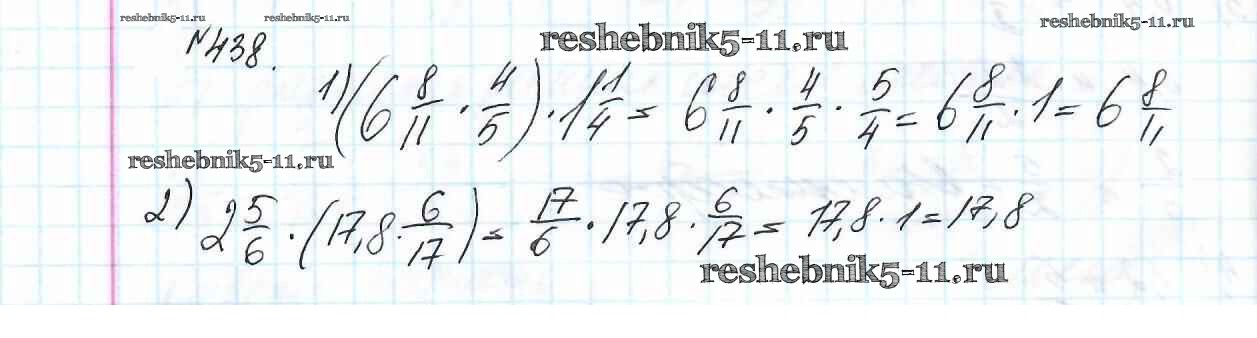 reshebnik5-11.ru reshebnik5-11.ru reshebnik5-11.ru
№438. reshebnik5-11.ru
1) (6 8/11 · 4/5) · 1 1/4 = 6 8/11 · 4/5 · 5/4 = 6 8/11 · 1 = 6 8/11
reshebnik5-11.ru
2) 2 5/6 · (17,8 · 6/17) = 17/6 · 17,8 · 6/17 = 17,8 · 1 = 17,8
reshebnik5-11.ru